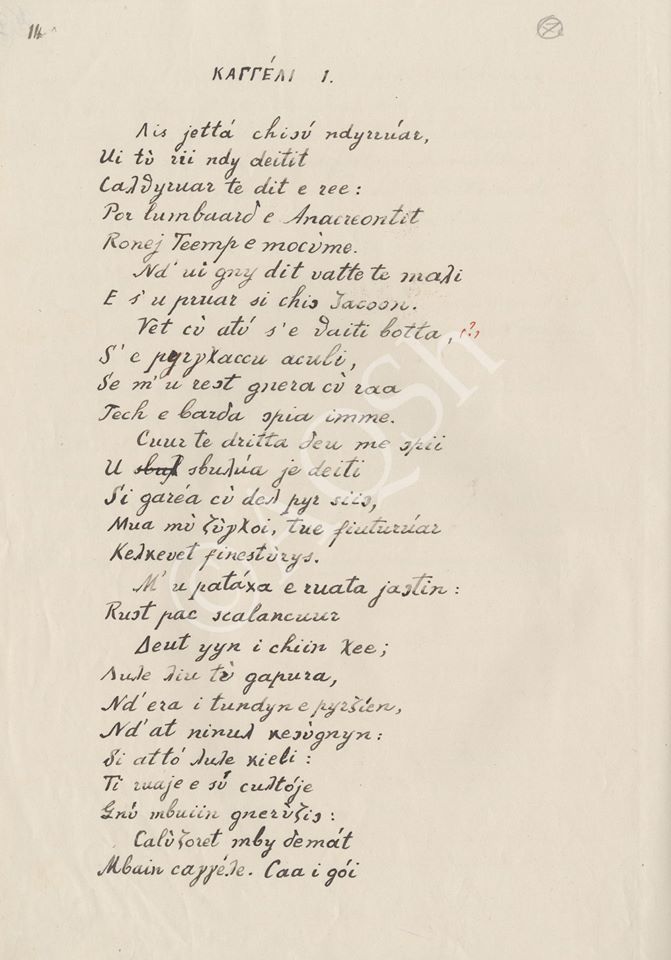 14
7
ΚΑΓΓΈΛΙ 1.
Λis jettá chisύ ndyrrύar,
Ui tὺ rii ndy deitit
Caλϑyruar te dit e ree:
Por lumbaarδ e Anacreontit
Ronej Teemp e mocὺme.
Nd' ui gny dit vatte te maλi
E s' u pruar si chiɔ Jacoon.
Vet cὺ atύ s' e ϑaiti botta, (?)
S' e pyrχaccu aculi,
Se m' u reɔt gnera cὺ raa
Tech e barδa ɔpia imme.
Cuur te dritta δeu me ɔpii
U sbuλύa je deiti
Si garéa cὺ δeλ pyr siiɔ,
Mua mὺ ζὺχλoi, tue fiuturύar
Keλκevet finestὺrys.
M' u patáxa e ruata jaɔtin:
Ruɔt pac scalancuur
Δeut yyn i chiin χee;
Λuλe λiu tὺ gapura,
Nd' era i tundyn e pyrζíen,
Nd' at ninuλ κeɔὺgnyn:
Si attó λuλe κieλi:
Ti ruaje e sύ cultóje
Gnύ mbuiin gnerὺζiɔ:
Calὺζoret mby δemát
Mbain caγγéλe. Caa i gói
©AQSh